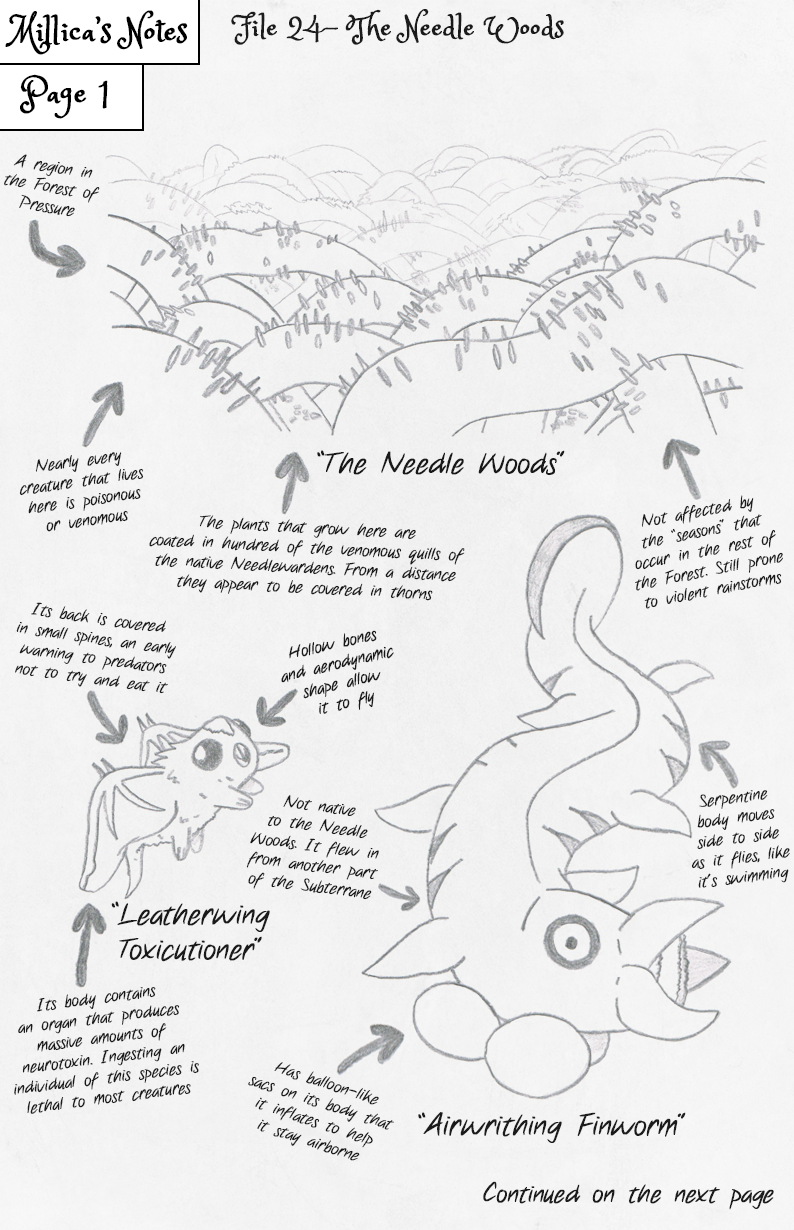 Millica's Notes
File 24- The Needle Woods
Page 1
A region in
the Forest of
Pressure
Nearly every
creature that lives
here is poisonous
or venomous
"The Needle Woods"
The plants that grow here are
coated in hundred of the venomous quills of
the native Needlewardens. From a distance
they appear to be covered in thorns
Not affected by
the "seasons" that
occur in the rest of
the Forest. Still prone
to violent rainstorms
Its back is covered
in small spines, an early
warning to predators
not to try and eat it
Hollow bones
and aerodynamic
shape allow
it to fly
Not native
to the Needle
Woods. It flew in
from another part
of the Subterrane
Serpentine
body moves
side to side
as it flies, like
it's swimming
"Leatherwing
Toxicutioner"
Its body contains
an organ that produces
massive amounts of
neurotoxin. Ingesting an
individual of this species is
lethal to most creatures
Has balloon-like
sacs on its body that
it inflates to help
it stay airborne
"Airwrithing Finworm"
Continued on the next page